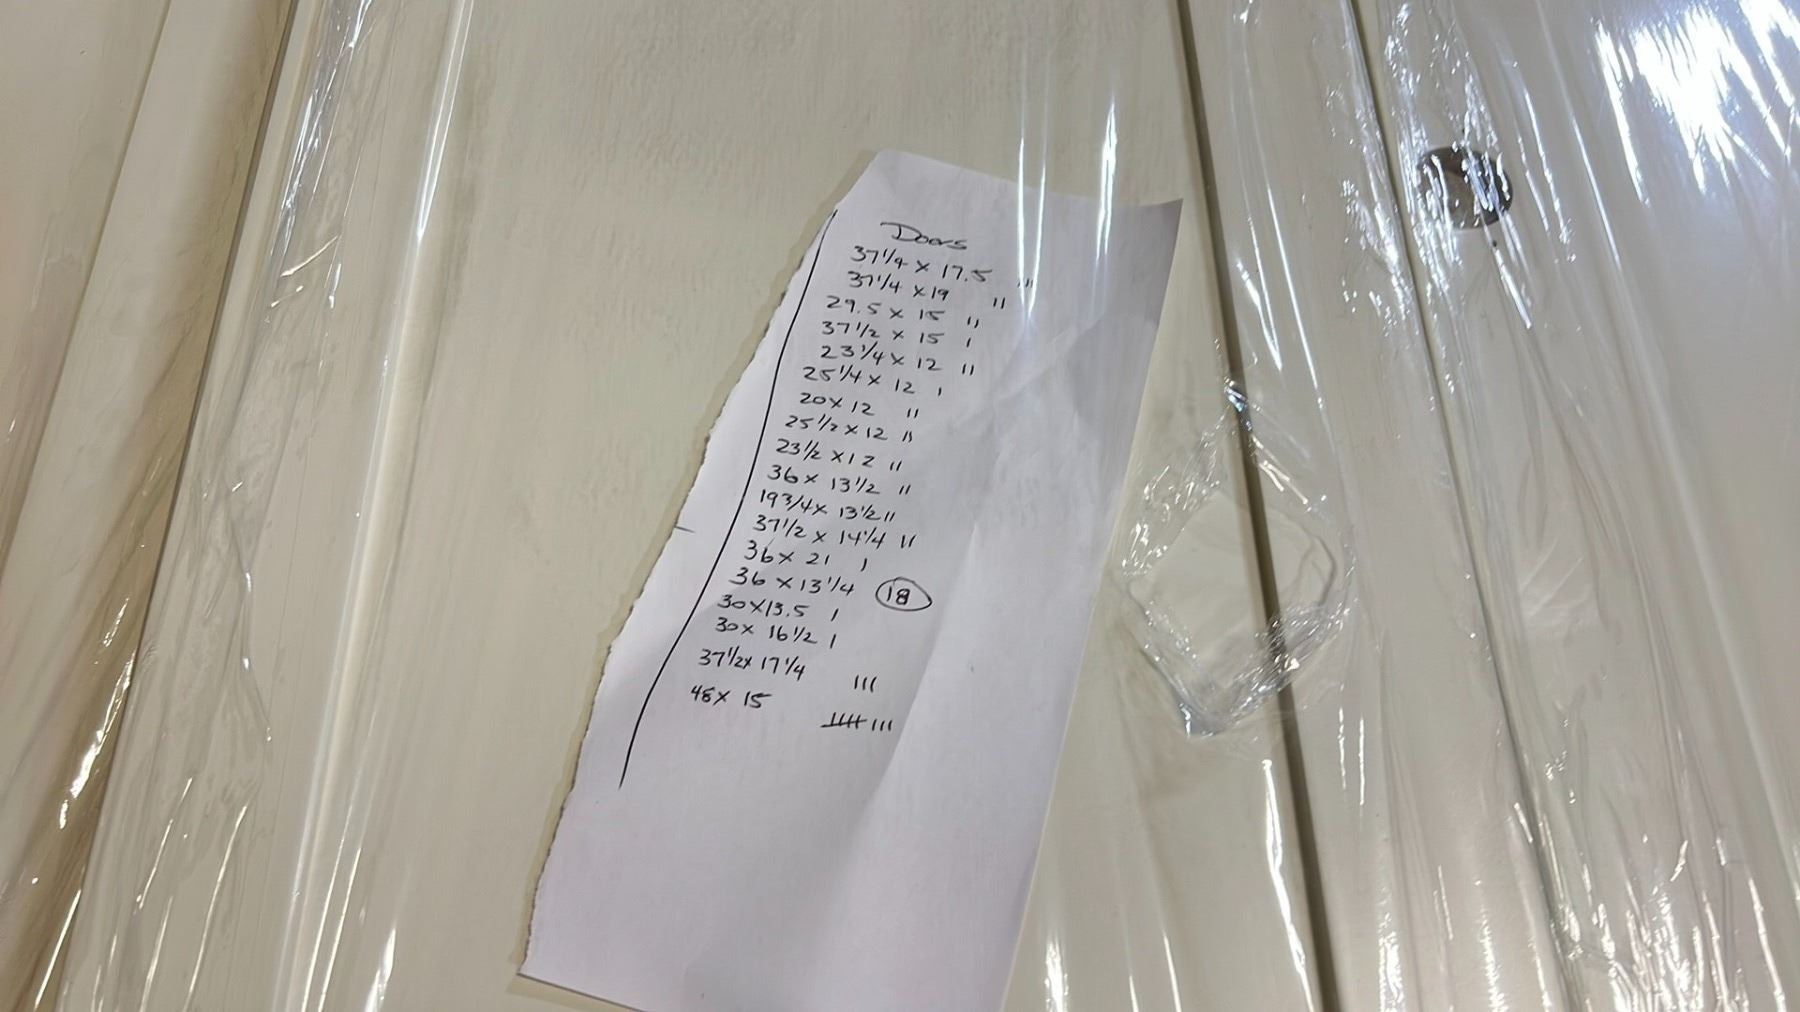 Doors
37 1/4 x 17.5 111
37 1/4 x 19 11
29.5 x 15 11
37 1/2 x 15 1
23 1/4 x 12 11
25 1/4 x 12 1
20 x 12 11
25 1/2 x 12 11
23 1/2 x 12 11
36 x 13 1/2 11
19 3/4 x 13 1/2 11
37 1/2 x 14 1/4 11
36 x 21 1
36 x 13 1/4 18
30 x 13.5 1
30 x 16 1/2 1
37 1/2 x 17 1/4 111
48 x 15 1111 111